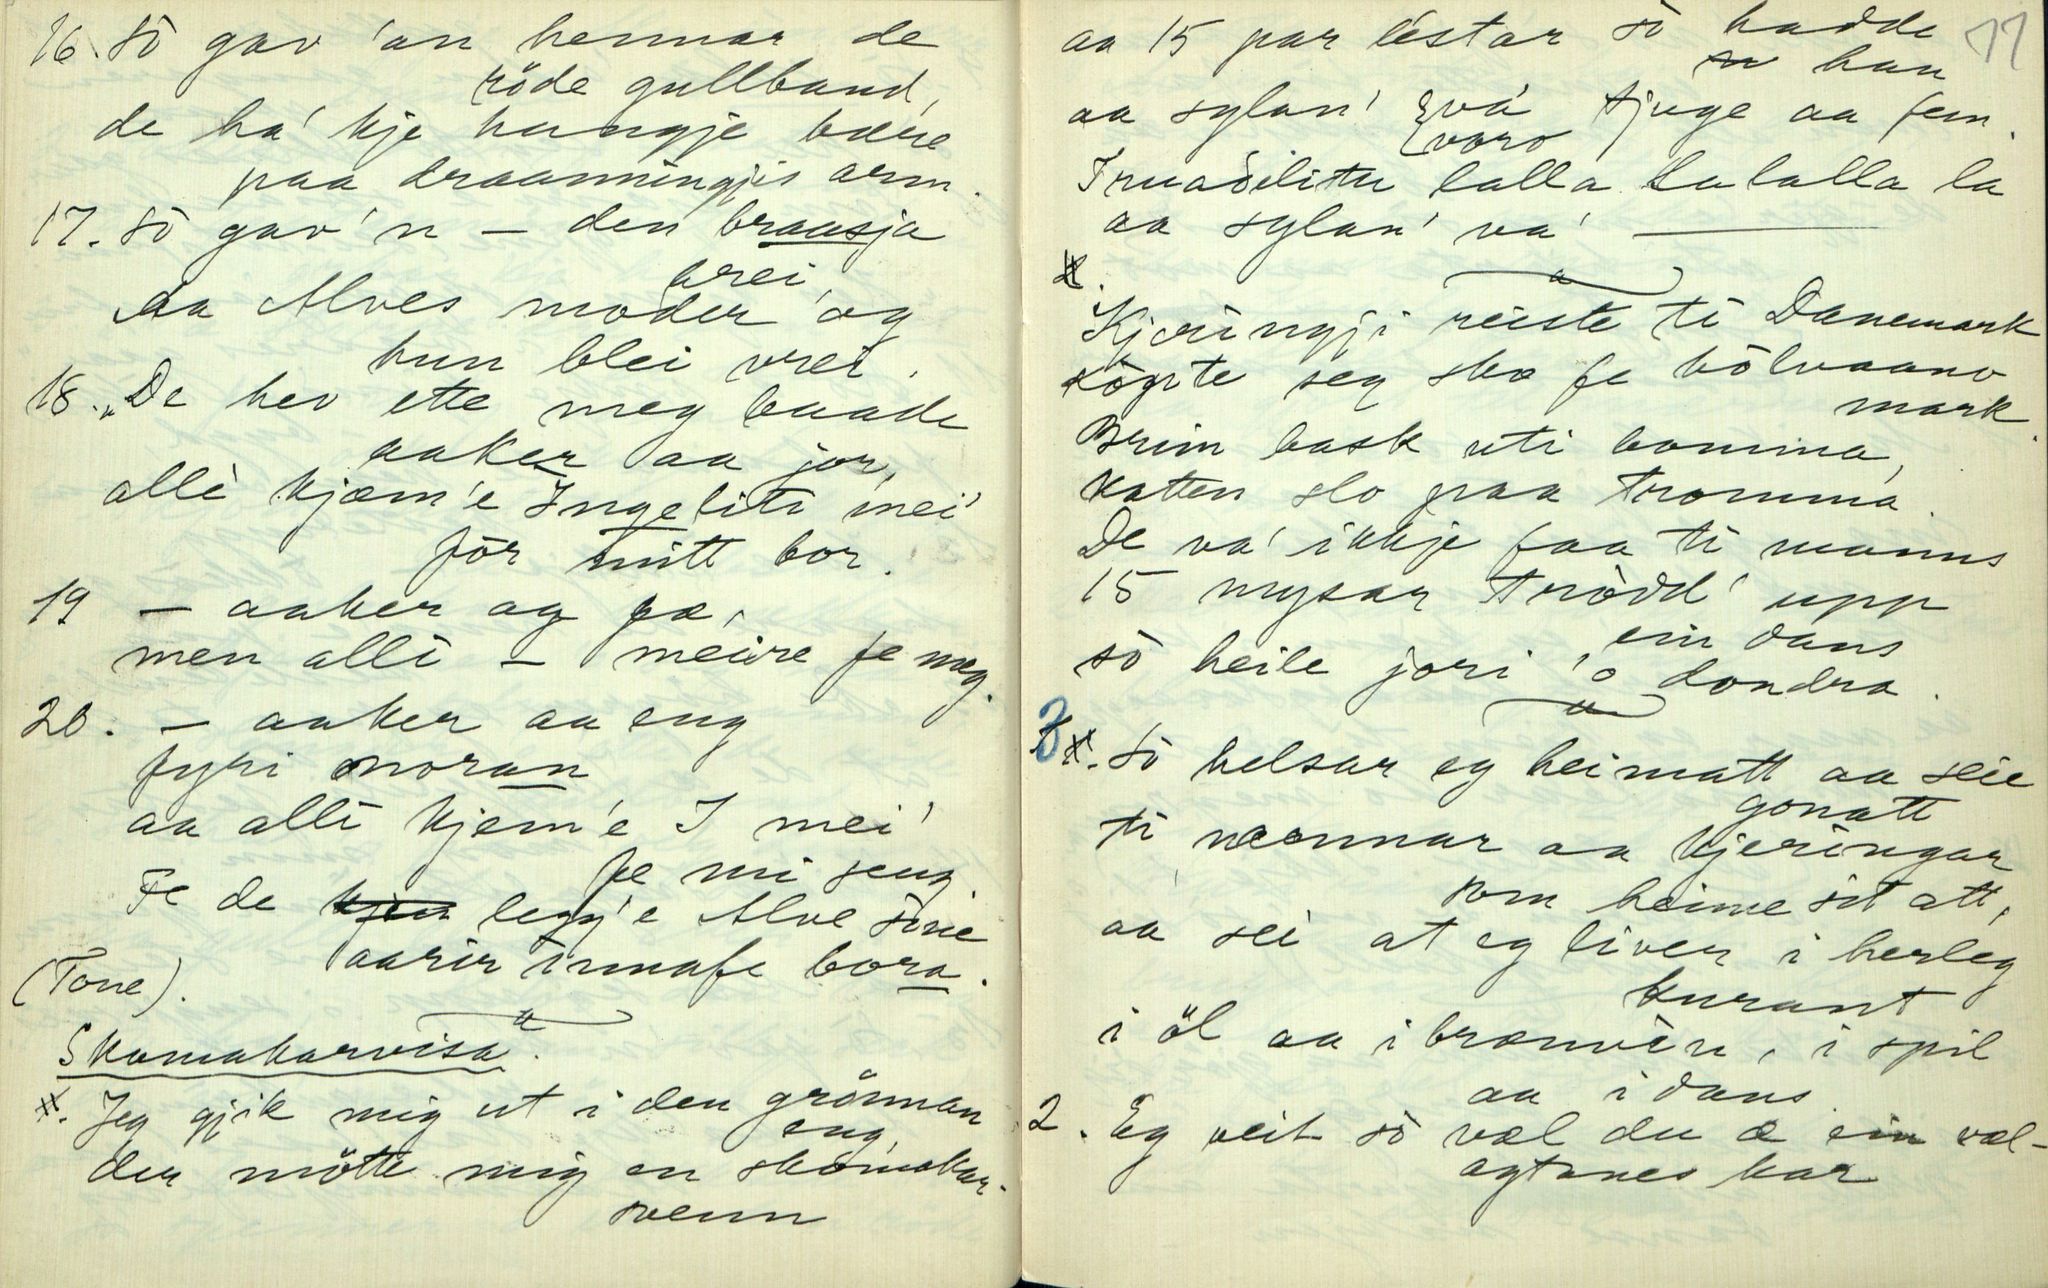 16. Sò gav 'an hennar de
röde gullband,
de ha' kje hungje bære
paa draanningjis arm.
17. Sò gav 'n — den braasja
brei,
aa Alves moder 'og
hun blei vrei.
18. „De hev ette meg baade
aaker aa jor,
allè kjæm'e Ingeliti mei'
för mitt bor.
19 — aaker og fæ,
men allì — meire fe meg.
20. — aaker aa eng
fyri noran
aa allì kjem'e I mei'
fe mi seng.
Fe de legg'e Alve sine
aarir innafe bora.
(Tone).
Skomakarvisa.
Jeg gjik mig ut i den grönnan
eng,
der mötte mig en skomakar-
svenn
11
aa 15 par lèstar sò hadde
han
aa sylan' va' tjuge aa fem.
voro
lalla lalalla la
aa sylan' va' —
Kjeringji reiste ti Danemark
kögte seg sko fe hòlvaano
mark.
Brim bask uti bomma,
katten slo paa tromma.
De va' ikkje faa ti manns
15 mysar trödd' upp
ein dans
sò heile jori 'o dondra.
3
Sò helsar eg heimatt aa seie
gonatt
ti mannar aa kjeringar
som heime sit att,
aa sei at eg liver i herleg
kurant
i öl aa i brænvin, i spil
aa i dans.
2. Eg veit sò væl du æ ein væl-
agtanes kar